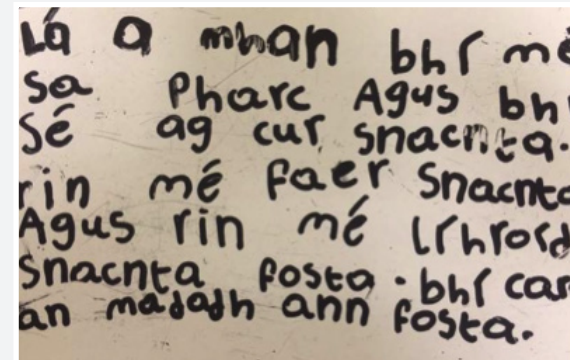 Lá a mhan bhí mé
sa Pharc Agus bhí
sé ag cur snacnta.
rin mé faer Snacnta
Agus rin mé
Snacnta fosta. bhí car
an madadh ann fosta.